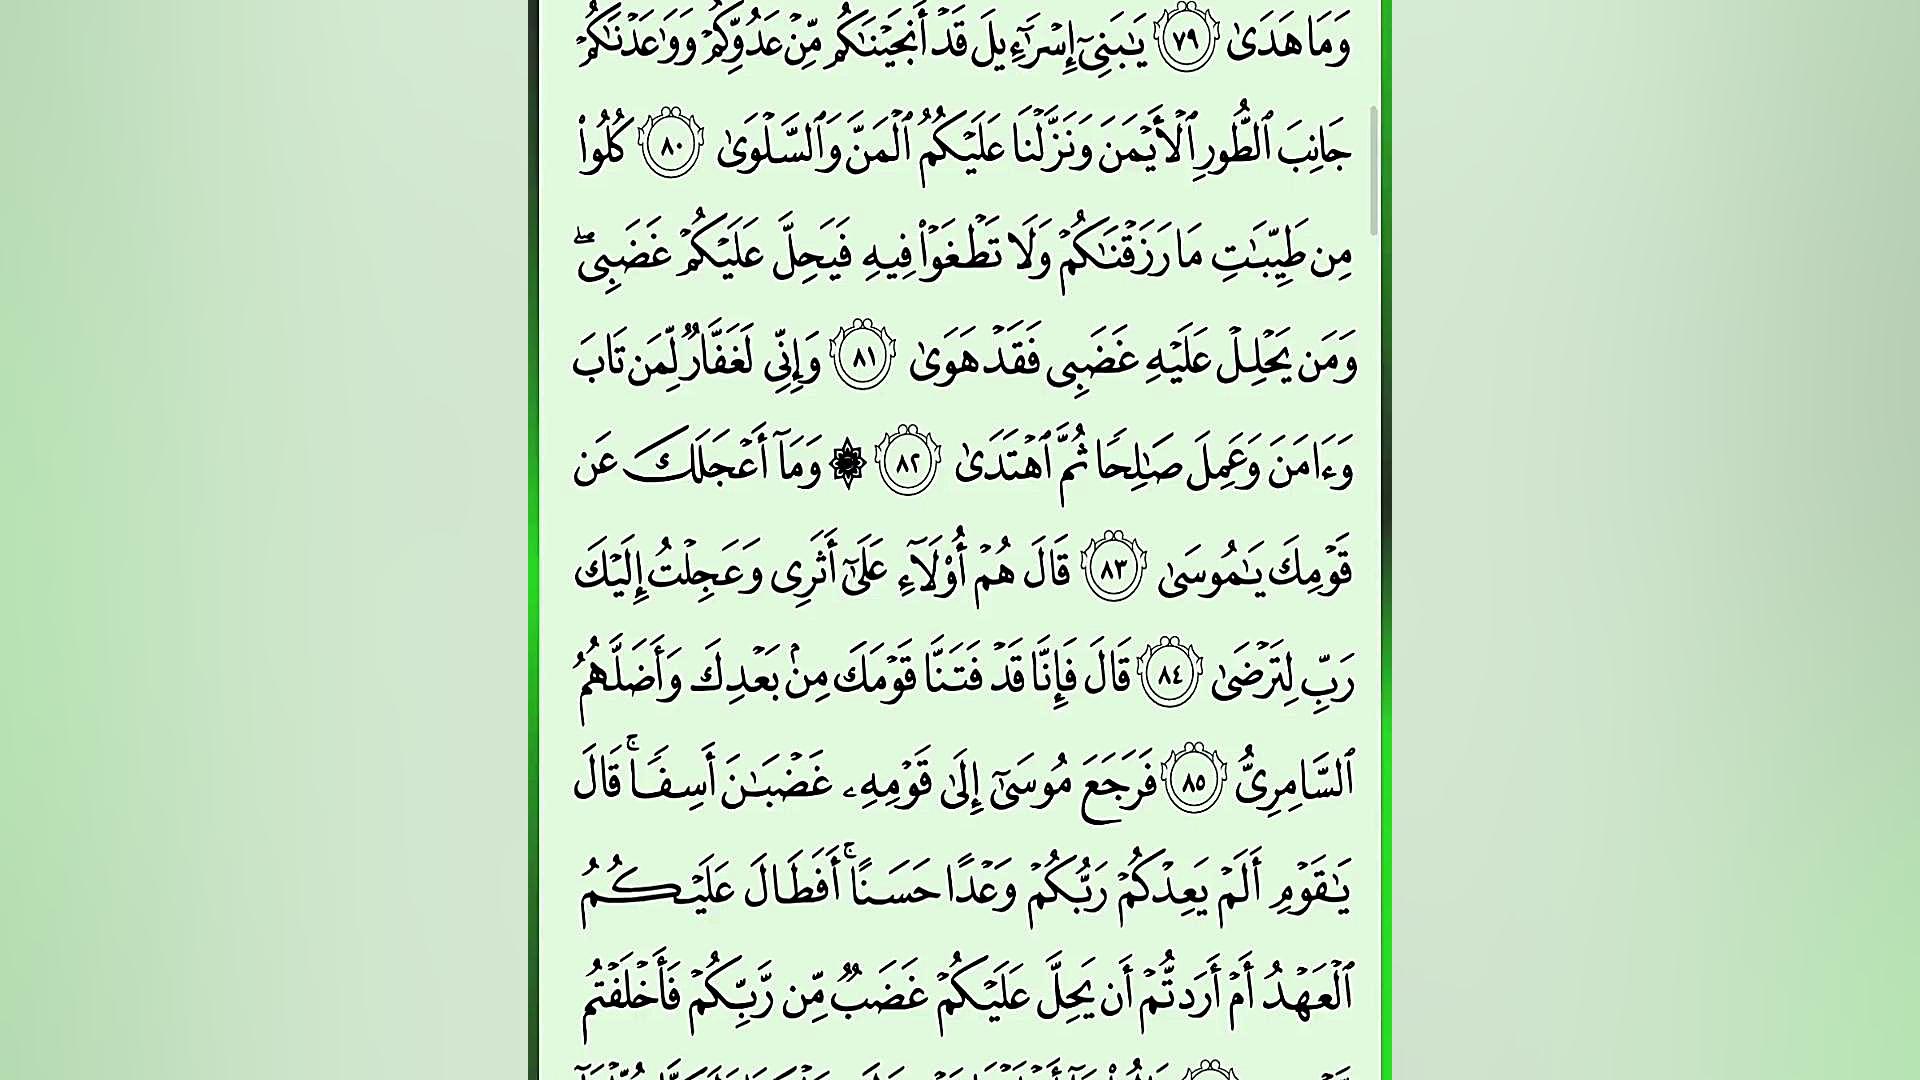 وَمَا هَدَىٰ ٧٩ يَـٰبَنِىٓ إِسْرَٰٓءِيلَ قَدْ أَنجَيْنَـٰكُم مِّنْ عَدُوِّكُمْ وَوَٰعَدْنَـٰكُمْ
جَانِبَ ٱلطُّورِ ٱلْأَيْمَنَ وَنَزَّلْنَا عَلَيْكُمُ ٱلْمَنَّ وَٱلسَّلْوَىٰ ٨٠ كُلُوا۟
مِن طَيِّبَـٰتِ مَا رَزَقْنَـٰكُمْ وَلَا تَطْغَوْا۟ فِيهِ فَيَحِلَّ عَلَيْكُمْ غَضَبِى ۖ
وَمَن يَحْلِلْ عَلَيْهِ غَضَبِى فَقَدْ هَوَىٰ ٨١ وَإِنِّى لَغَفَّارٌ لِّمَن تَابَ
وَءَامَنَ وَعَمِلَ صَـٰلِحًا ثُمَّ ٱهْتَدَىٰ ٨٢ ۞ وَمَآ أَعْجَلَكَ عَن
قَوْمِكَ يَـٰمُوسَىٰ ٨٣ قَالَ هُمْ أُو۟لَآءِ عَلَىٰٓ أَثَرِى وَعَجِلْتُ إِلَيْكَ
رَبِّ لِتَرْضَىٰ ٨٤ قَالَ فَإِنَّا قَدْ فَتَنَّا قَوْمَكَ مِنۢ بَعْدِكَ وَأَضَلَّهُمُ
ٱلسَّامِرِىُّ ٨٥ فَرَجَعَ مُوسَىٰٓ إِلَىٰ قَوْمِهِۦ غَضْبَـٰنَ أَسِفًا ۚ قَالَ
يَـٰقَوْمِ أَلَمْ يَعِدْكُمْ رَبُّكُمْ وَعْدًا حَسَنًا ۚ أَفَطَالَ عَلَيْكُمُ
ٱلْعَهْدُ أَمْ أَرَدتُّمْ أَن يَحِلَّ عَلَيْكُمْ غَضَبٌ مِّن رَّبِّكُمْ فَأَخْلَفْتُم